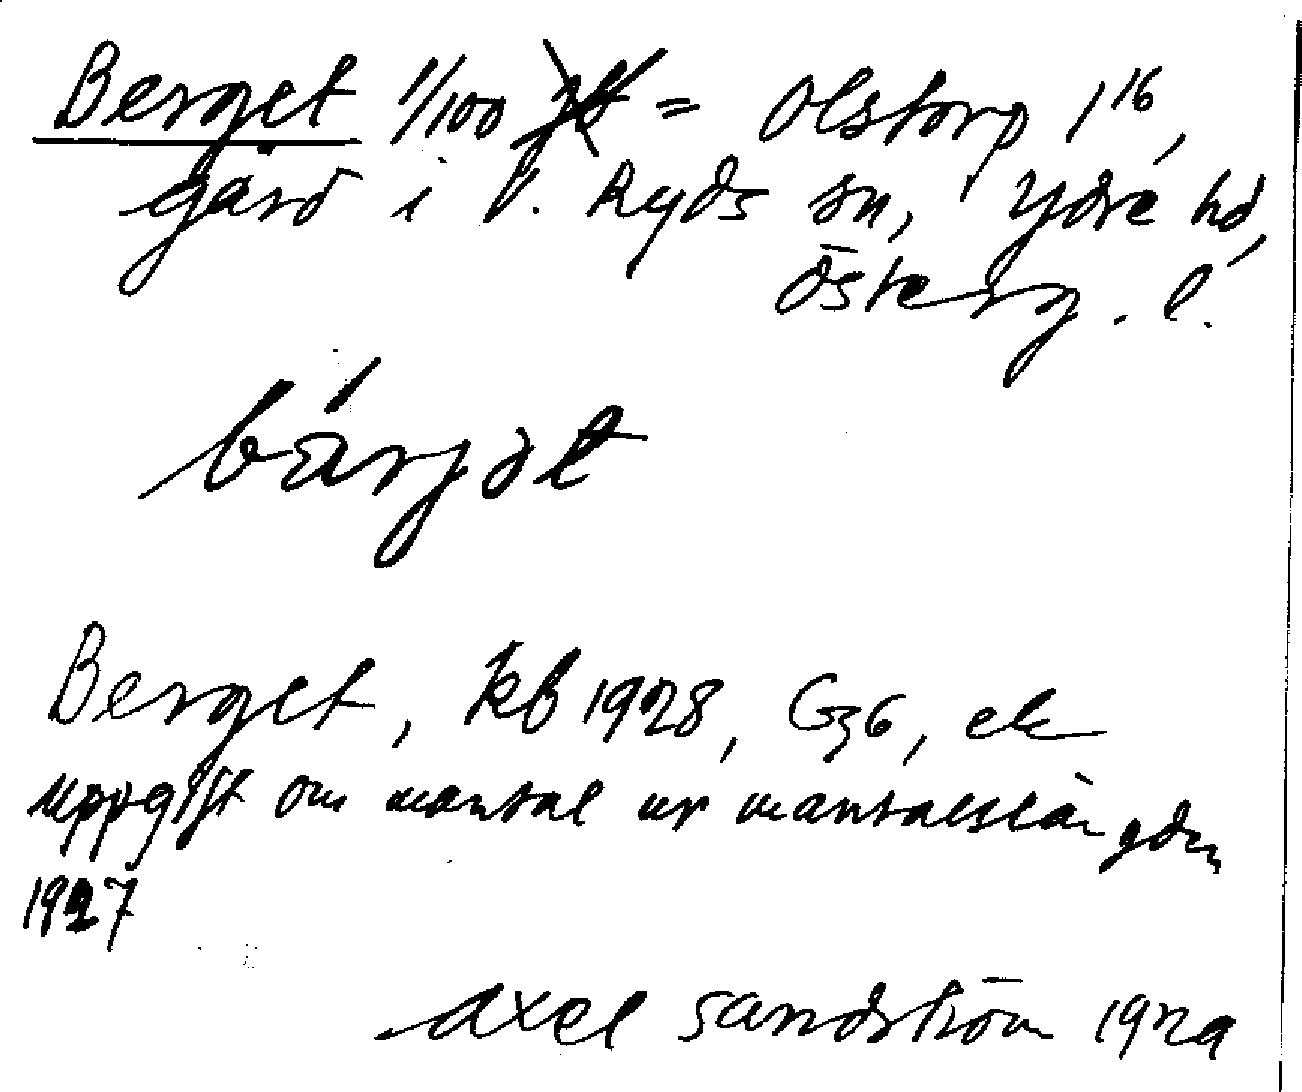 Berget 1/100 = Olstorp 1¹⁶,
gård i V. Ryds sn, Ydre hd,
Österg. l.
bärjət
Berget, kb 1928, G36, ek
uppgift om mantal ur mantalslängden
1927
Axel Sandström 1929